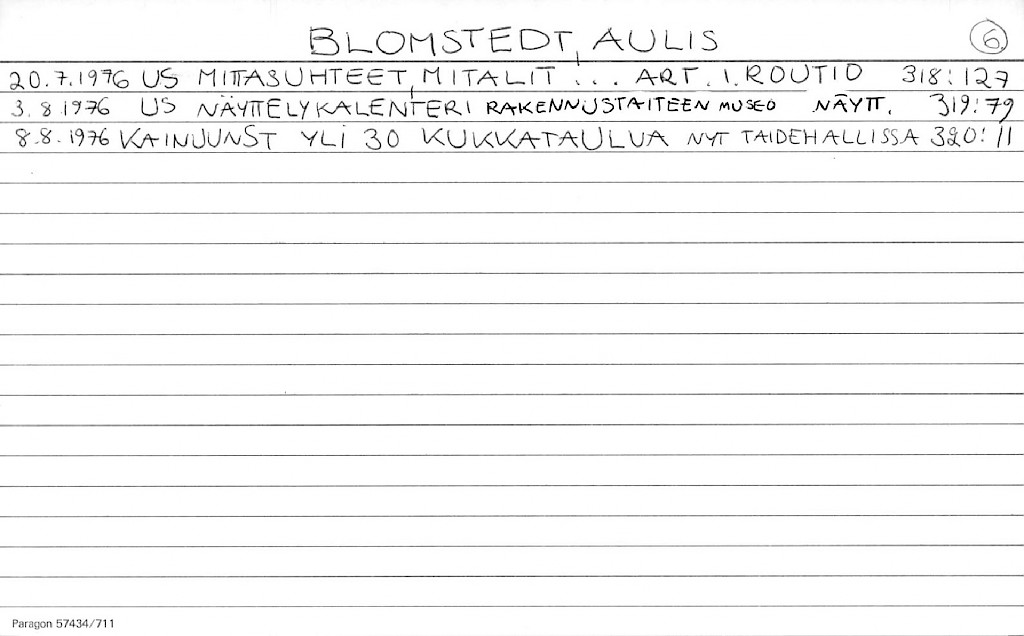 BLOMSTEDT, AULIS 6
20.7.1976 US MITTASUHTEET, MITALIT ... ART. I. ROUTIO 318:127
3.8.1976 US NÄYTTELYKALENTERI RAKENNUSTAITEEN MUSEO NÄYTT. 319:79
8.8.1976 KAINUUNST YLI 30 KUKKATAULUA NYT TAIDEHALLISSA 320:11
Paragon 57434/711